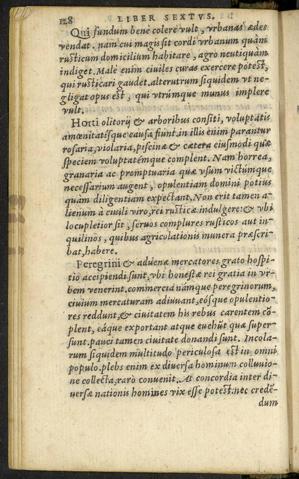 128 LIBER SEXTVS.
Qui fundum bene colere vult, vrbanas ædes
vendat. nam cui magis sit cordi vrbanum quàm
rusticum domicilium habitare, agro neutiquàm
indiget. Male enim ciuiles curas exercere potest,
qui rusticari gaudet. alterutrum siquidem vt ne-
gligat opus est, qui vtrúmque munus implere
vult.
Horti olitorij & arboribus consiti, voluptatis
amœnitatísque causa fiunt. in illis enim parantur
rosaria, violaria, piscinæ & cætera eiusmodi quæ
speciem voluptatémque complent. Nam horrea,
granaria ac promptuaria quæ vsum victúmque
necessarium augent, opulentiam domini potiùs
quàm diligentiam expectant. Non erit tamen a-
lienum à ciuili viro, rei rusticæ indulgere: & vbi
locupletior sit, seruos complures rusticos aut in-
quilinos, quibus agricolationis munera præscri-
bat, habere.
Peregrini & aduenæ mercatores grato hospi-
tio accipiendi sunt, vbi honestæ rei gratia in vr-
bem venerint. commercia námque peregrinorum,
ciuium mercaturam adiuuant, eósque opulentio-
res reddunt, & ciuitatem his rebus carentem cō-
plent, eáque exportant atque euehūt quæ super-
sunt. pauci tamen ciuitate donandi sunt. Incola-
rum siquidem multitudo periculosa est in omni
populo. plebs enim ex diuersa hominum colluuio-
ne collecta, rarò conuenit. At concordia inter di-
uersæ nationis homines vix esse potest. nec credē-
dum